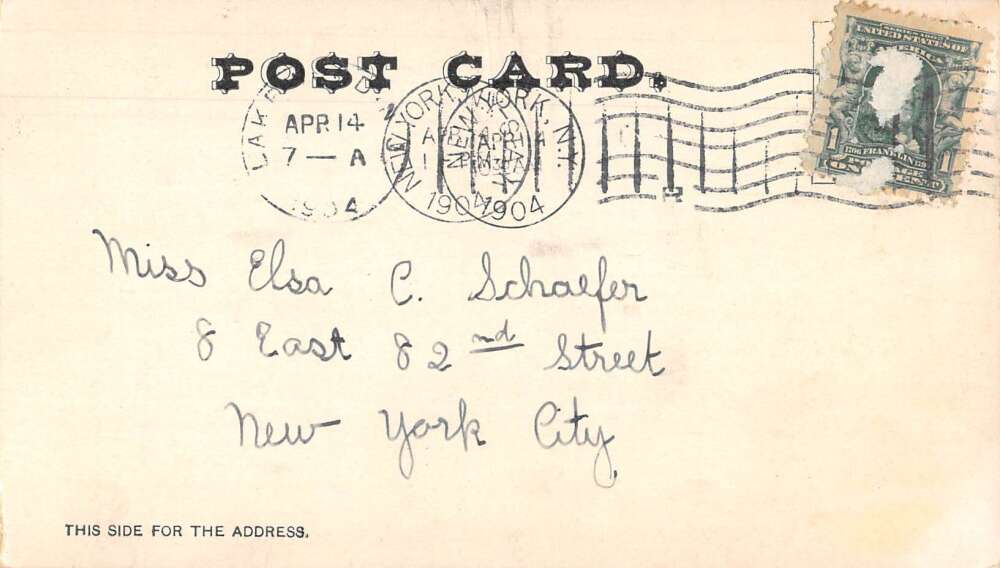 POST CARD.
LAKE
APR 14
7 — A
1904
NEW YORK, N.Y.
APR 14
1904
NEW YORK, N.Y.
APR 14
1904
UNITED STATES OF
AMERICA
1706 FRANKLIN 1790
1 1
Miss Elsa C. Schaefer
8 East 82nd Street
New York City.
THIS SIDE FOR THE ADDRESS.